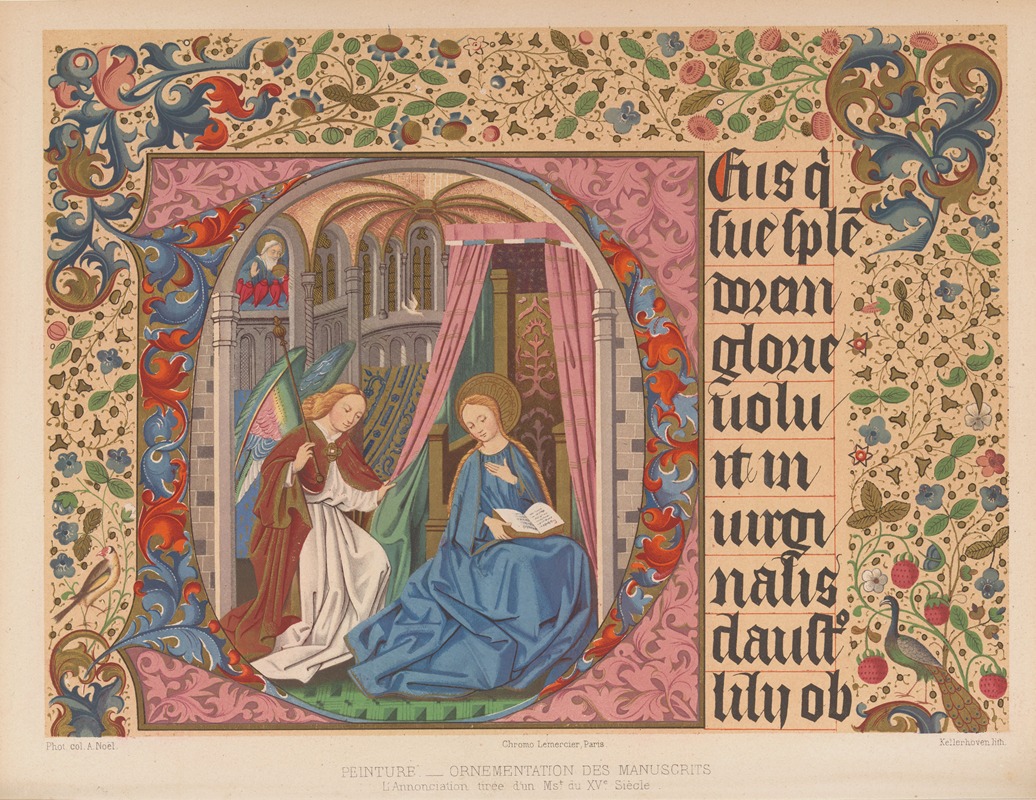 Eius q̇
sue splē
dorem
glorie
uolu
it in
uirgi
nalis
claustº
lilij ob
Phot. col. A. Noël.
Chromo Lemercier, Paris
Kellerhoven lith.
PEINTURE — ORNEMENTATION DES MANUSCRITS
L'Annonciation tirée d'un Msᵗ du XVᵉ Siècle